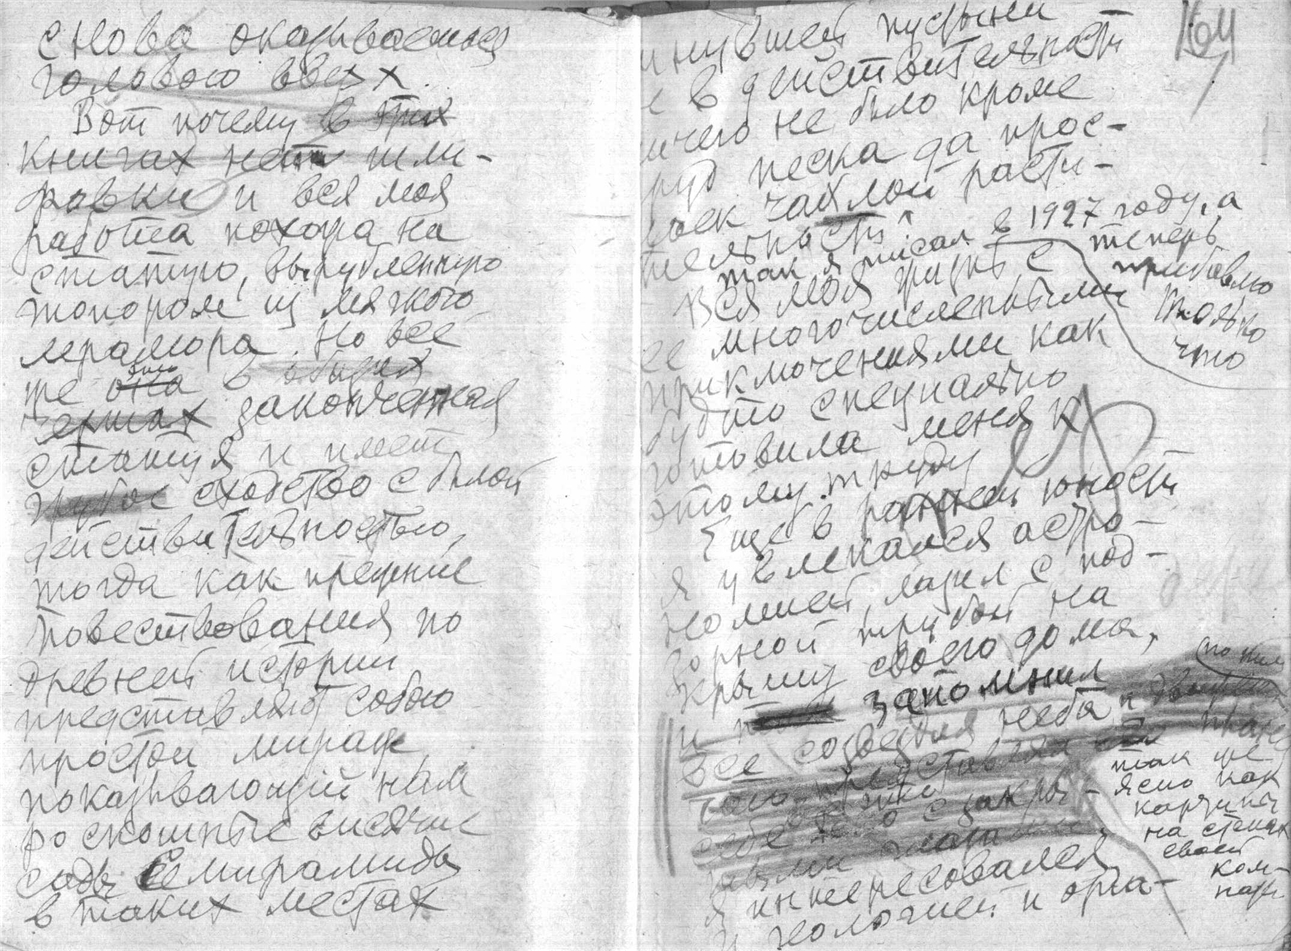 снова оказывается
головою вверх.
Вот почему в этих
книгах нет шли-
фовки и вся моя
работа похожа на
статую, вырубленную
топором из мягкого
мрамора. Но все
же она в общих
чертах законченная
статуя и имеет
грубое сходство с былой
действительностью,
тогда как прежние
повествования по
древней истории
представляют собою
простой мираж,
показывающий нам
роскошные висячие
сады Семирамиды
в таких местах
пустыни
в действительности
ничего не было кроме
песка да прос-
чахлой расти-
тельности".
так я писал в 1927 году, а
теперь
прибавлю
только
что
Вся моя жизнь с
ее многочисленными
приключениями как
будто специально
готовила меня к
этому труду
Еще в ранней юности
я увлекался астро-
номией, лазил с под-
зорной трубой на
крышу своего дома,
и запомнил
все созвездия неба и
представлял
так же
ясно как
картины
на стенах
своей
ком-
наты
я интересовался
164